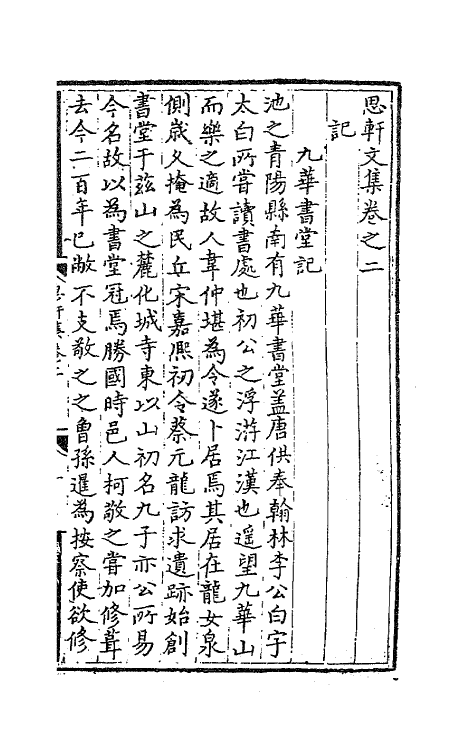 思軒文集卷之二
記
九華書堂記
池之青陽縣南有九華書堂盖唐供奉翰林李公白字
太白所嘗讀書處也初公之浮游江漢也遥望九華山
而樂之適故人韋仲堪為令遂卜居焉其居在龍女泉
側嵗久掩為民丘宋嘉熈初令蔡元龍訪求遺跡始創
書堂于兹山之麓化城寺東以山初名九子亦公所易
今名故以為書堂冠焉勝國時邑人柯敬之嘗加修葺
去今二百年已敝不支敬之之曾孫暹為按察使欲修
思軒集卷二